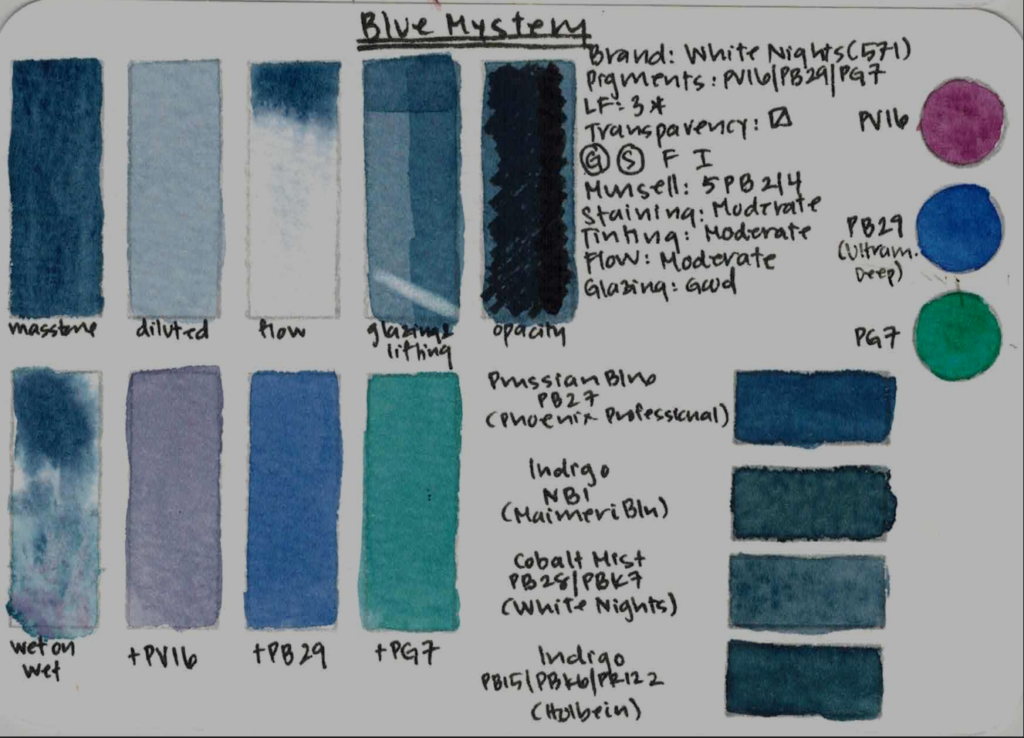 Blue Mystery
Brand: White Nights (571)
Pigments: PV16/PB29/PG7
LF: 3*
Transparency:
G S F I
Munsell: 5PB 2/4
Staining: Moderate
Tinting: Moderate
Flow: Moderate
Glazing: Good
PV16
PB29
(Ultram.
Deep)
PG7
masstone
diluted
flow
glazing &
lifting
opacity
wet on
wet
+PV16
+PB29
+PG7
Prussian Blue
PB27
(Phoenix Professional)
Indigo
NB1
(MaimeriBlu)
Cobalt Mist
PB28/PBK7
(White Nights)
Indigo
PB15/PBk6/PR122
(Holbein)